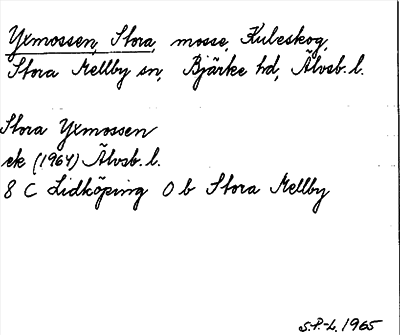 Yxmossen, Stora, mosse, Kuleskog,
Stora Mellby sn, Bjärke hd, Älvsb. l.
Stora Yxmossen
ek (1964) Älvsb. l.
8 C Lidköping 0 b Stora Mellby
S.P.-L. 1965